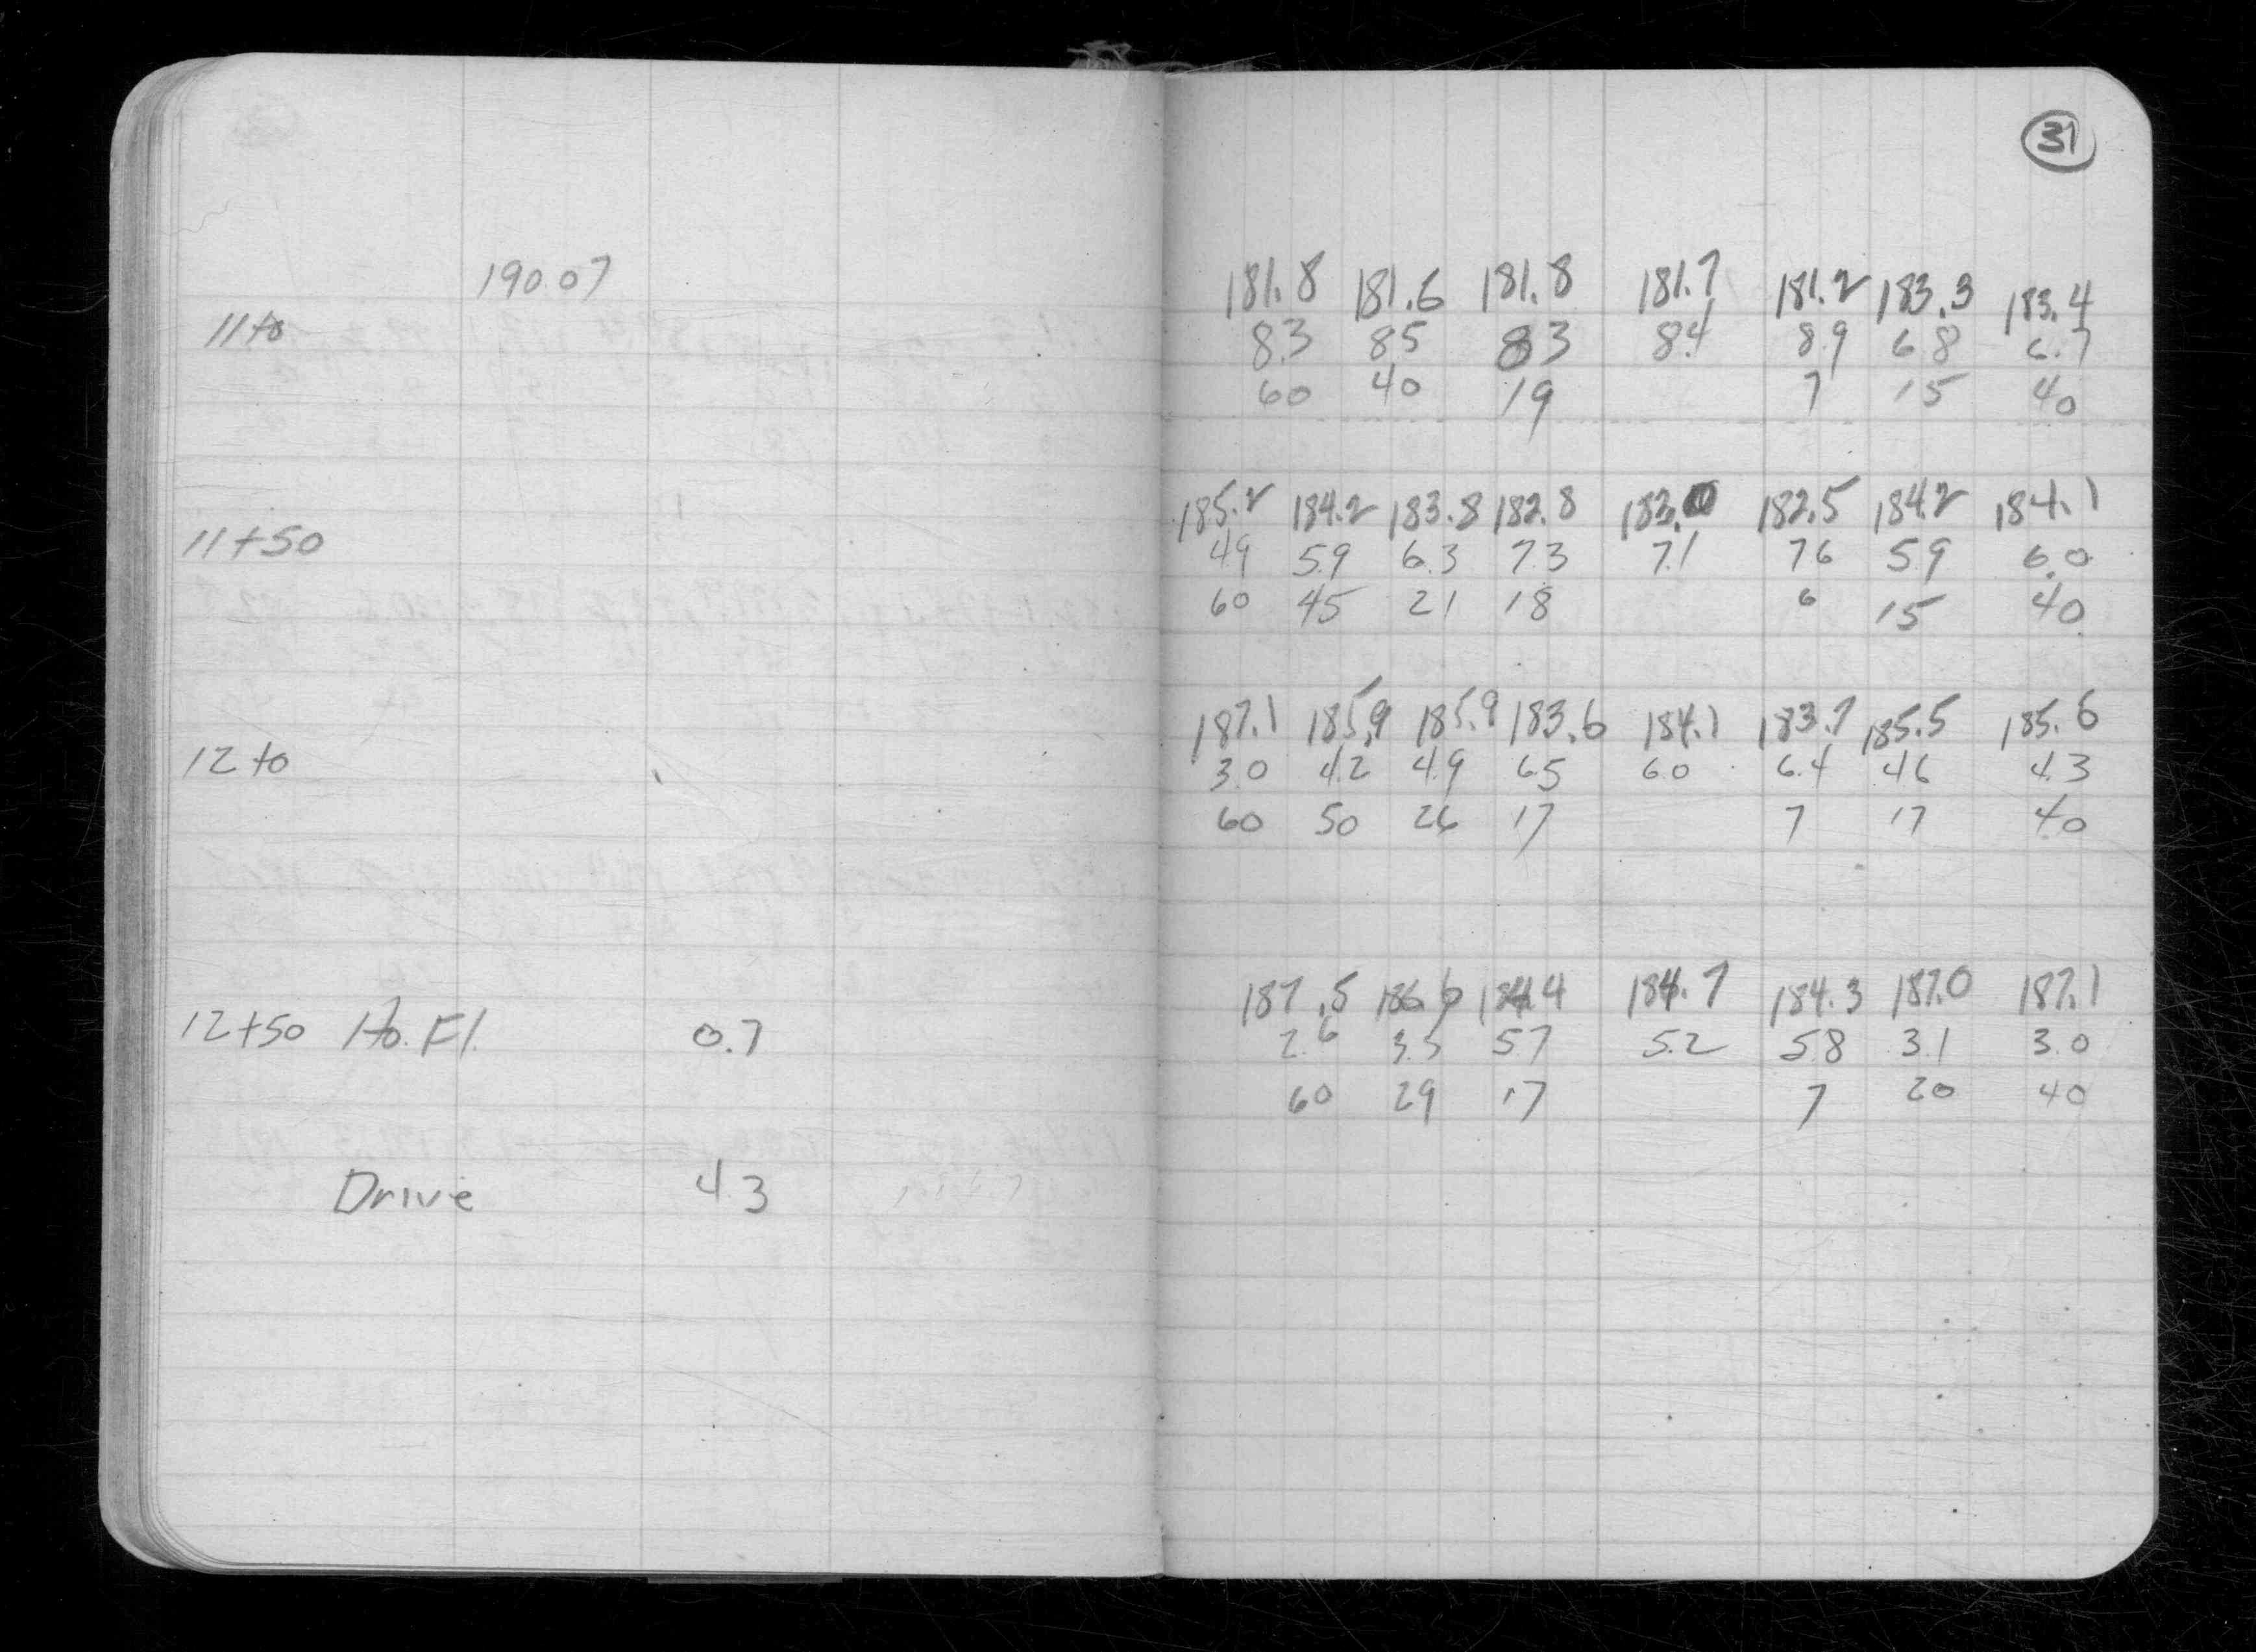 31
190.07
181.8 181.6 181.8 181.7 181.2 183.3 183.4
11+0 8.3 8.5 8.3 8.4 8.9 6.8 6.7
60 40 19 7 15 40
185.2 184.2 183.8 182.8 183.0 182.5 184.2 184.1
11+50 4.9 5.9 6.3 7.3 7.1 7.6 5.9 6.0
60 45 21 18 6 15 40
187.1 185.9 185.9 183.6 184.1 183.7 185.5 185.6
12+0 3.0 4.2 4.9 6.5 6.0 6.4 4.6 4.3
60 50 26 17 7 17 40
187.5 186.6 184.4 184.7 184.3 187.0 187.1
12+50 Ho. Fl. 0.7 2.6 3.5 5.7 5.2 5.8 3.1 3.0
60 29 17 7 20 40
Drive 4.3